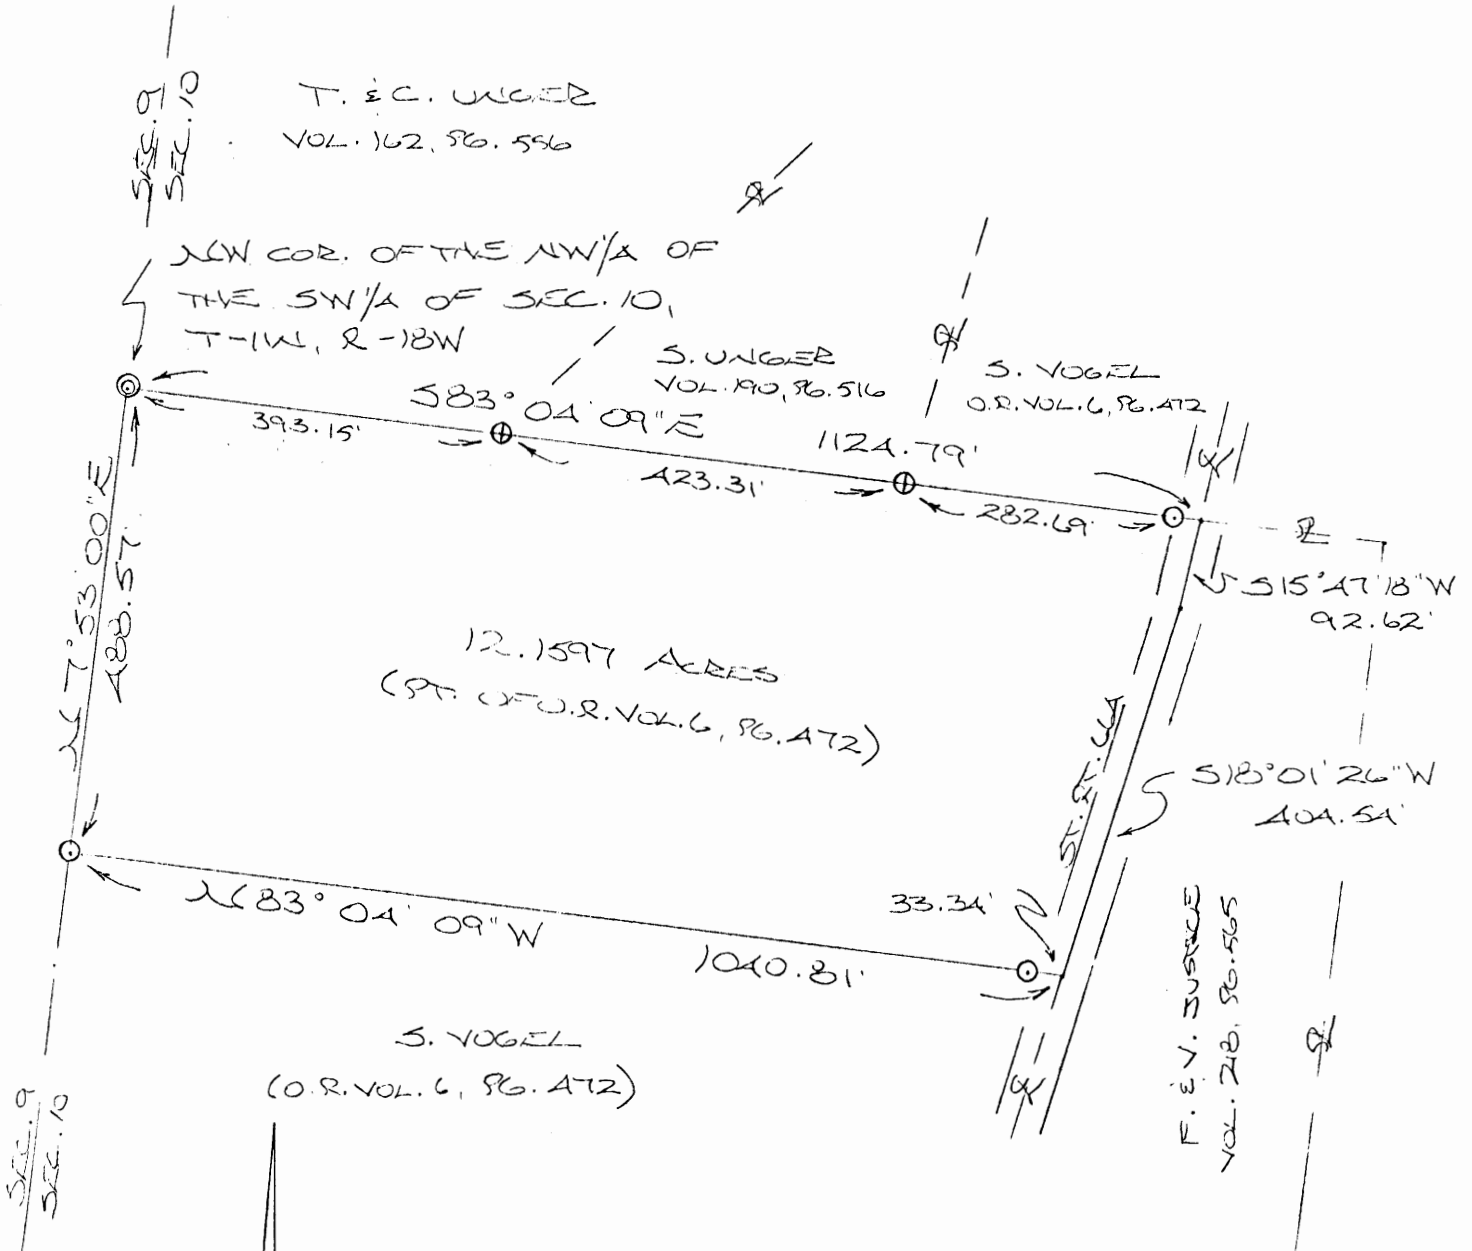 SEC. 9
SEC. 10
T. & C. UNGER
VOL. 162, PG. 556
NW COR. OF THE NW 1/4 OF
THE SW 1/4 OF SEC. 10,
T-1N, R-18W
S. UNGER
VOL. 190, PG. 516
S. VOGEL
O.R. VOL. 6, PG. 472
S83° 04' 09"E
1124.79'
393.15'
423.31'
282.69'
N 7° 53' 00"E
488.57'
S15° 47' 18"W
92.62'
12.1597 ACRES
(PT. OF O.R. VOL. 6, PG. 472)
S18° 01' 26"W
404.54'
33.34'
N83° 04' 09"W
1040.81'
S. VOGEL
(O.R. VOL. 6, PG. 472)
F. & V. JUSTICE
VOL. 218, PG. 565
SEC. 9
SEC. 10
ST. RT.